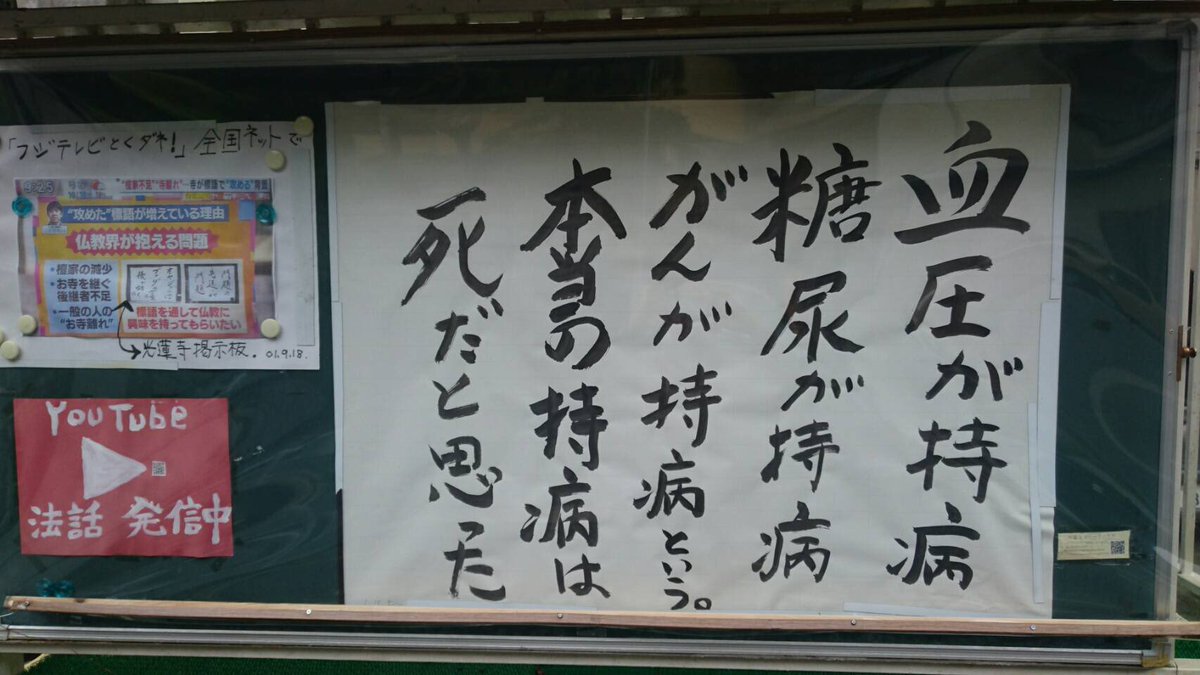 血圧が持病
糖尿が持病
がんが持病という。
本当の持病は
死だと思った
「フジテレビとくダネ!」全国ネットで
9:25
"檀家不足""寺離れ"…寺が標語で"攻める"背景
"攻めた"標語が増えている理由
仏教界が抱える問題
•檀家の減少
•お寺を継ぐ
後継者不足
•一般の人の
"お寺離れ"
標語を通して仏教に
興味を持ってもらいたい
光蓮寺掲示板. 01.9.18.
YouTube
法話 発信中